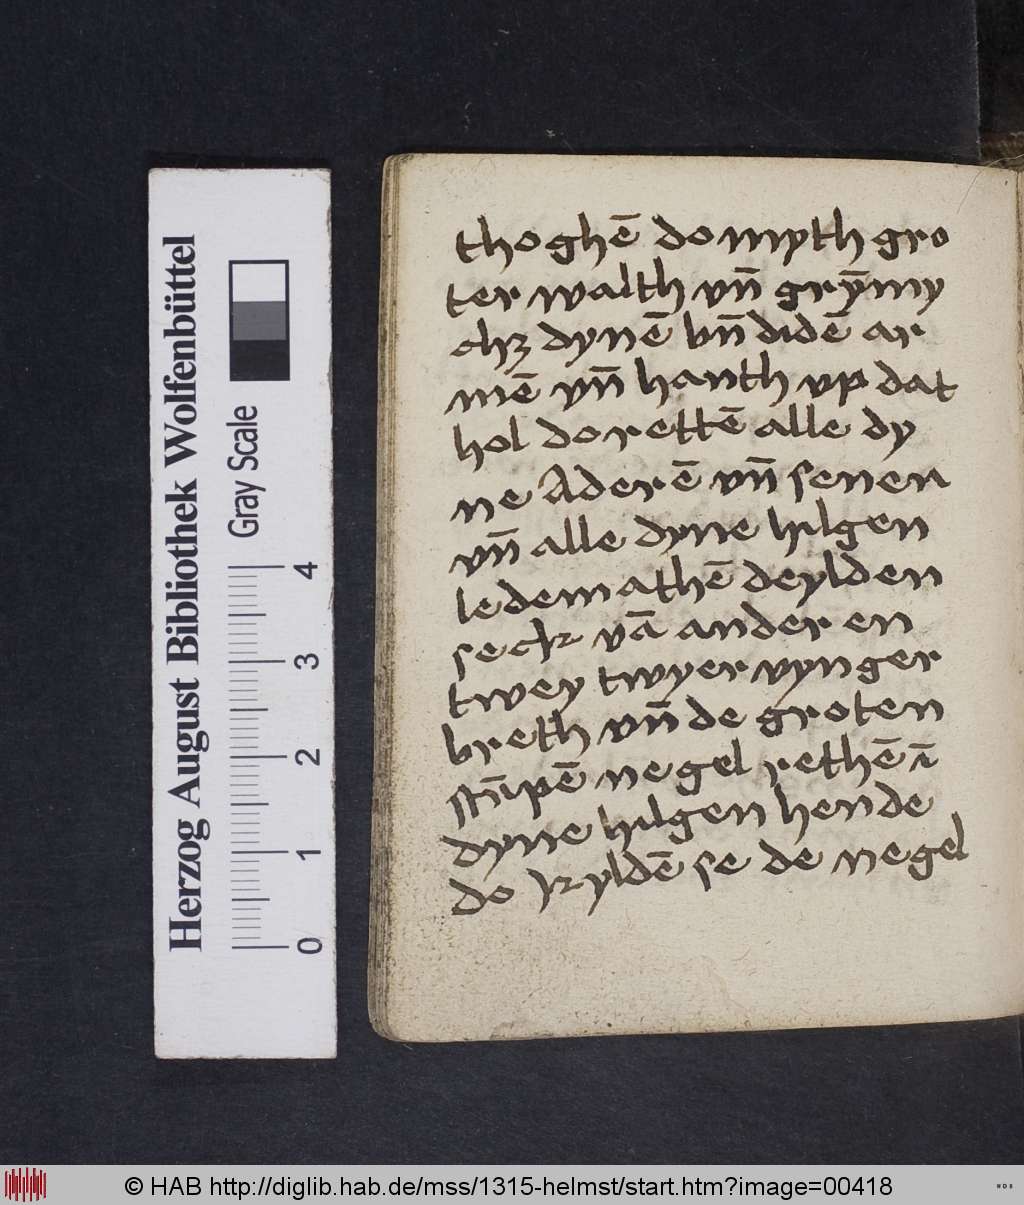 thoghē do myth gro
ter walth vn̄ grȳmy
chz dynē vn̄ didē ar
mē vn̄ hanth vp dat
hol do rettē alle dy
ne Aderē vn̄ senen
vn̄ alle dyne hilgen
ledemathē deylden
seck vā ander en
twey twyer vynger
breth vn̄ de groten
negel rethē ī
dyne hilgen hende
do kyldē se de negel
Herzog August Bibliothek Wolfenbüttel
Gray Scale
0 1 2 3 4
© HAB http://diglib.hab.de/mss/1315-helmst/start.htm?image=00418